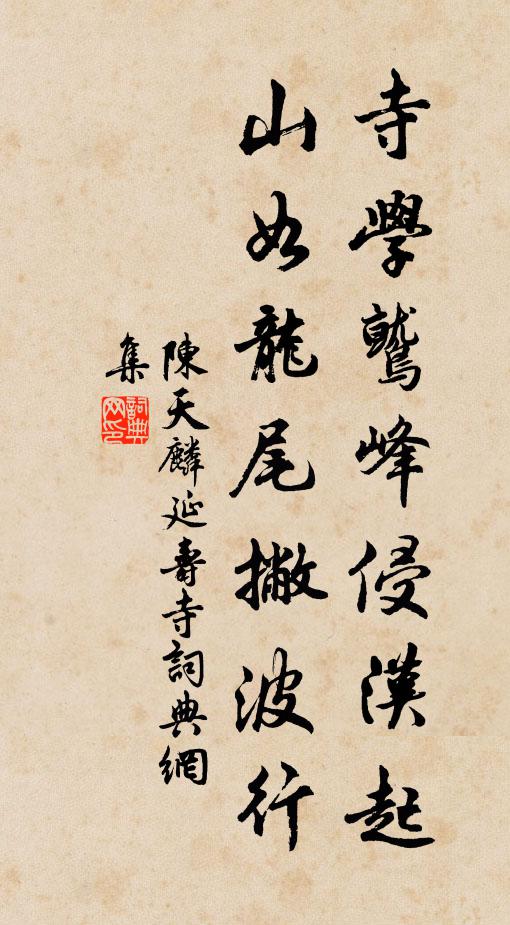 寺學鷲峰侵漢起
山如龍尾撇波行
陳天麟延壽寺詞典網
集
詞典網印